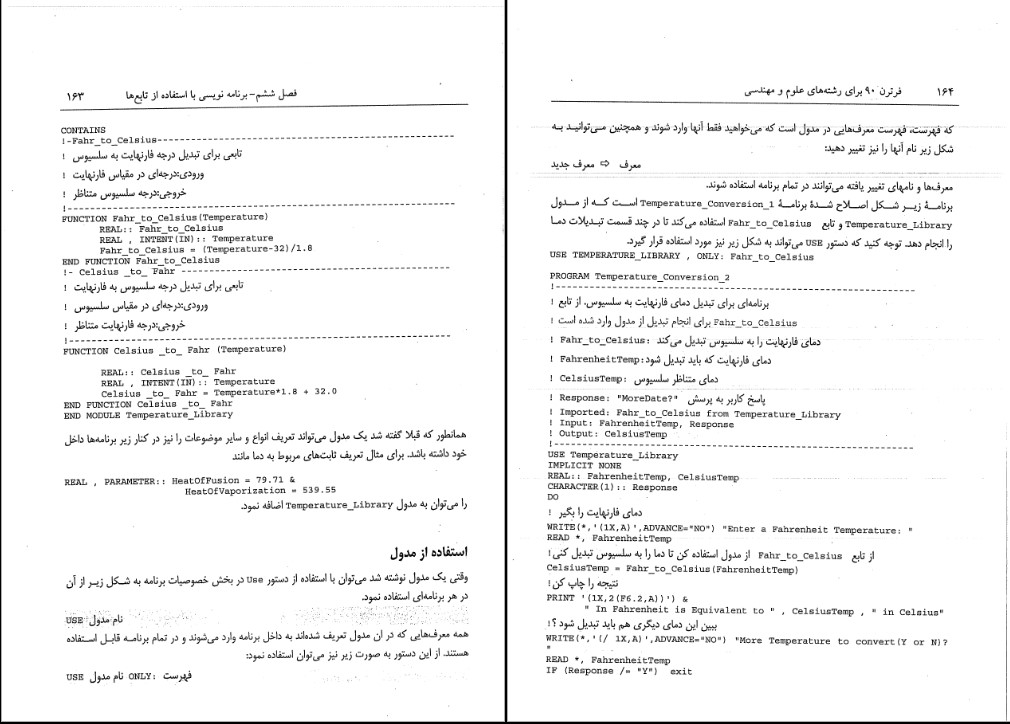 فصل ششم-برنامه نویسی با استفاده از تابع‌ها ۱۶۳
CONTAINS
!-Fahr_to_Celsius-----------------------------------------
! تابعی برای تبدیل درجه فارنهایت به سلسیوس
! ورودی:درجه‌ای در مقیاس فارنهایت
! خروجی:درجه سلسیوس متناظر
!-----------------------------------------------------
FUNCTION Fahr_to_Celsius(Temperature)
REAL:: Fahr_to_Celsius
REAL , INTENT(IN):: Temperature
Fahr_to_Celsius = (Temperature-32)/1.8
END FUNCTION Fahr_to_Celsius
!- Celsius _to_ Fahr --------------------------------------
! تابعی برای تبدیل درجه سلسیوس به فارنهایت
! ورودی:درجه‌ای در مقیاس سلسیوس
! خروجی:درجه فارنهایت متناظر
!-----------------------------------------------------
FUNCTION Celsius _to_ Fahr (Temperature)
REAL:: Celsius _to_ Fahr
REAL , INTENT(IN):: Temperature
Celsius _to_ Fahr = Temperature*1.8 + 32.0
END FUNCTION Celsius _to_ Fahr
END MODULE Temperature_Library
همانطور که قبلا گفته شد یک مدول می‌تواند تعریف انواع و سایر موضوعات را نیز در کنار زیر برنامه‌ها داخل
خود داشته باشد. برای مثال تعریف ثابت‌های مربوط به دما مانند
REAL , PARAMETER:: HeatOfFusion = 79.71 &
HeatOfVaporization = 539.55
را می‌توان به مدول Temperature_Library اضافه نمود.
استفاده از مدول
وقتی یک مدول نوشته شد می‌توان با استفاده از دستور Use در بخش خصوصیات برنامه به شکل زیر از آن
در هر برنامه‌ای استفاده نمود.
USE نام مدول
همه معرف‌هایی که در آن مدول تعریف شده‌اند به داخل برنامه وارد می‌شوند و در تمام برنامه قابل استفاده
هستند. از این دستور به صورت زیر نیز می‌توان استفاده نمود:
USE نام مدول ONLY: فهرست
۱۶۴ فرترن ۹۰ برای رشته‌های علوم و مهندسی
که فهرست، فهرست معرف‌هایی در مدول است که می‌خواهید فقط آنها وارد شوند و همچنین می‌توانید به
شکل زیر نام آنها را نیز تغییر دهید:
معرف ⇨ معرف جدید
معرف‌ها و نامهای تغییر یافته می‌توانند در تمام برنامه استفاده شوند.
برنامهٔ زیر شکل اصلاح شدهٔ برنامهٔ Temperature_Conversion_1 است که از مدول
Temperature_Library و تابع Fahr_to_Celsius استفاده می‌کند تا در چند قسمت تبدیلات دما
را انجام دهد. توجه کنید که دستور USE می‌تواند به شکل زیر نیز مورد استفاده قرار گیرد.
USE TEMPERATURE_LIBRARY , ONLY: Fahr_to_Celsius
PROGRAM Temperature_Conversion_2
!-----------------------------------------------------
! برنامه‌ای برای تبدیل دمای فارنهایت به سلسیوس. از تابع
! Fahr_to_Celsius برای انجام تبدیل از مدول وارد شده است
! Fahr_to_Celsius: دمای فارنهایت را به سلسیوس تبدیل می‌کند
! FahrenheitTemp:دمای فارنهایت که باید تبدیل شود
! CelsiusTemp: دمای متناظر سلسیوس
! Response: "MoreDate?" پاسخ کاربر به پرسش
! Imported: Fahr_to_Celsius from Temperature_Library
! Input: FahrenheitTemp, Response
! Output: CelsiusTemp
!-----------------------------------------------------
USE Temperature_Library
IMPLICIT NONE
REAL:: FahrenheitTemp, CelsiusTemp
CHARACTER(1):: Response
DO
! دمای فارنهایت را بگیر
WRITE(*,'(1X,A)',ADVANCE="NO") "Enter a Fahrenheit Temperature: "
READ *, FahrenheitTemp
از تابع Fahr_to_Celsius از مدول استفاده کن تا دما را به سلسیوس تبدیل کنی!
CelsiusTemp = Fahr_to_Celsius(FahrenheitTemp)
نتیجه را چاپ کن!
PRINT '(1X,2(F6.2,A))') &
" In Fahrenheit is Equivalent to " , CelsiusTemp , " in Celsius"
ببین این دمای دیگری هم باید تبدیل شود ؟!
WRITE(*,'(/ 1X,A)',ADVANCE="NO") "More Temperature to convert(Y or N)?
"
READ *, FahrenheitTemp
IF (Response /= "Y") exit